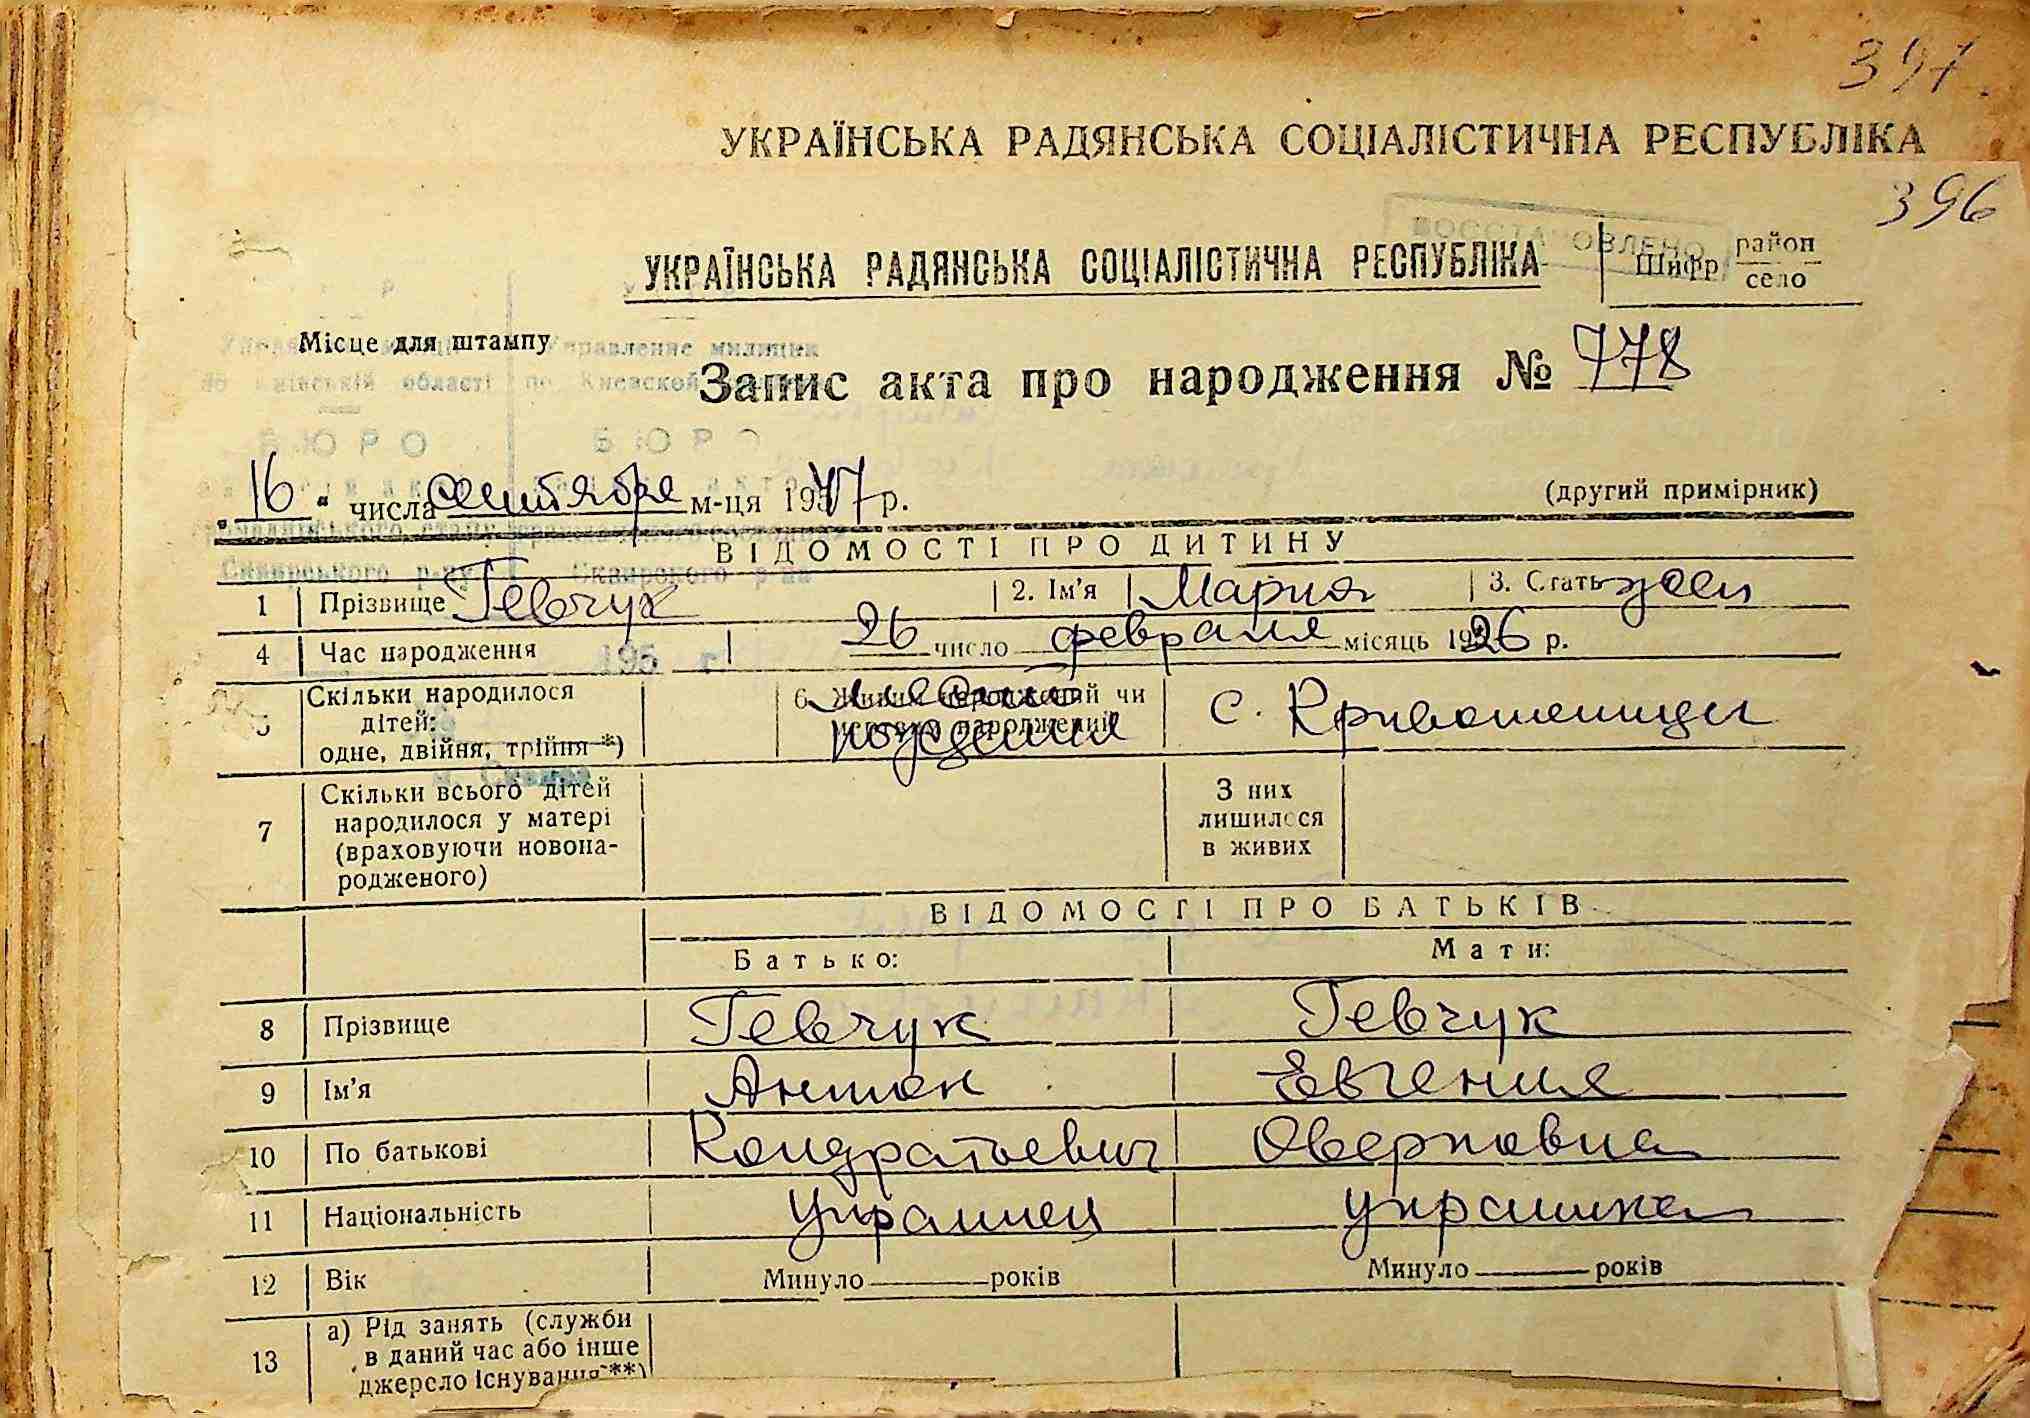 397
УКРАЇНСЬКА РАДЯНСЬКА СОЦІАЛІСТИЧНА РЕСПУБЛІКА
396
ВОССТАНОВЛЕНО
УКРАЇНСЬКА РАДЯНСЬКА СОЦІАЛІСТИЧНА РЕСПУБЛІКА
Шифр район
село
Місце для штампу
Управление милиции
по Киевской
Запис акта про народження № 778
БЮРО БЮРО
"16" числа сентября м-ця 1947 р. (другий примірник)
ВІДОМОСТІ ПРО ДИТИНУ
Сквирського р-ну Сквирского р-на
1 Прізвище Гевчук 2. Ім'я Мария 3. Стать жен
4 Час народження 26 число февраля місяць 1926 р.
195 г.
5 Скільки народилося дітей: одне, двійня, трійня *) 6. Живим народжений чи мертво народжений
место рождения с. Кривошеинцы
м. Сквира
7 Скільки всього дітей народилося у матері (враховуючи новона-родженого) З них лишилося в живих
ВІДОМОСТІ ПРО БАТЬКІВ
Батько: Мати:
8 Прізвище Гевчук Гевчук
9 Ім'я Антон Евгения
10 По батькові Кондратьевич Оверковна
11 Національність Украинец украинка
12 Вік Минуло років Минуло років
13 а) Рід занять (служби
в даний час або інше
джерело існування **)